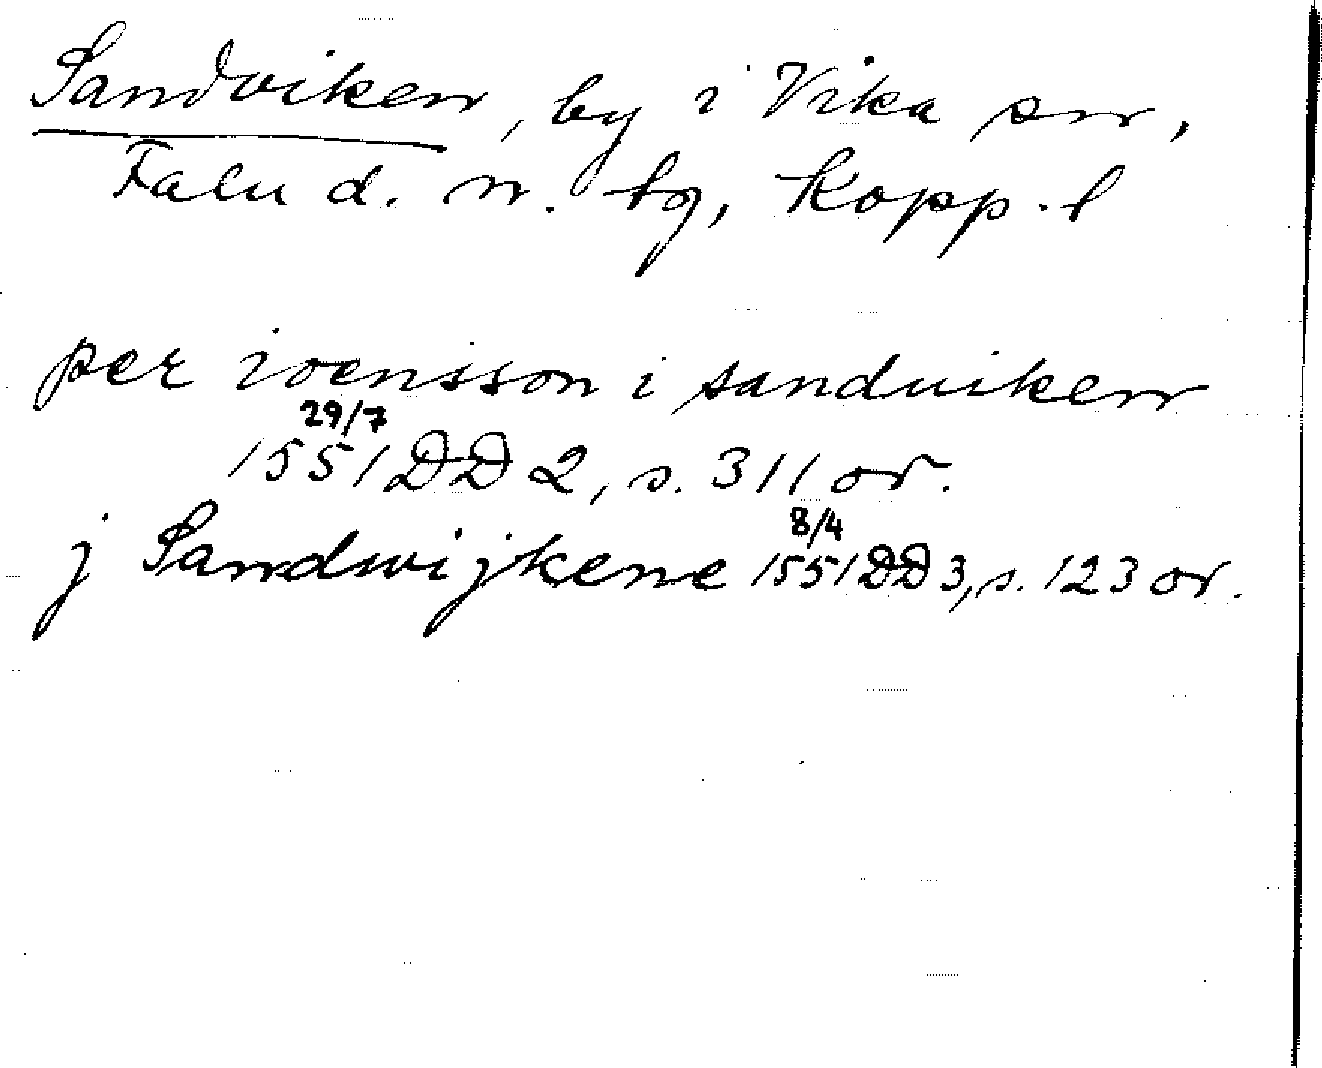 Sandviken, by i Vika sn,
Falu d. n. tg, Kopp. l
per ioensson i sandviken
29/7
1551 DD 2, s. 311 or.
8/4
j Sandwijkene 1551 DD 3, s. 123 or.